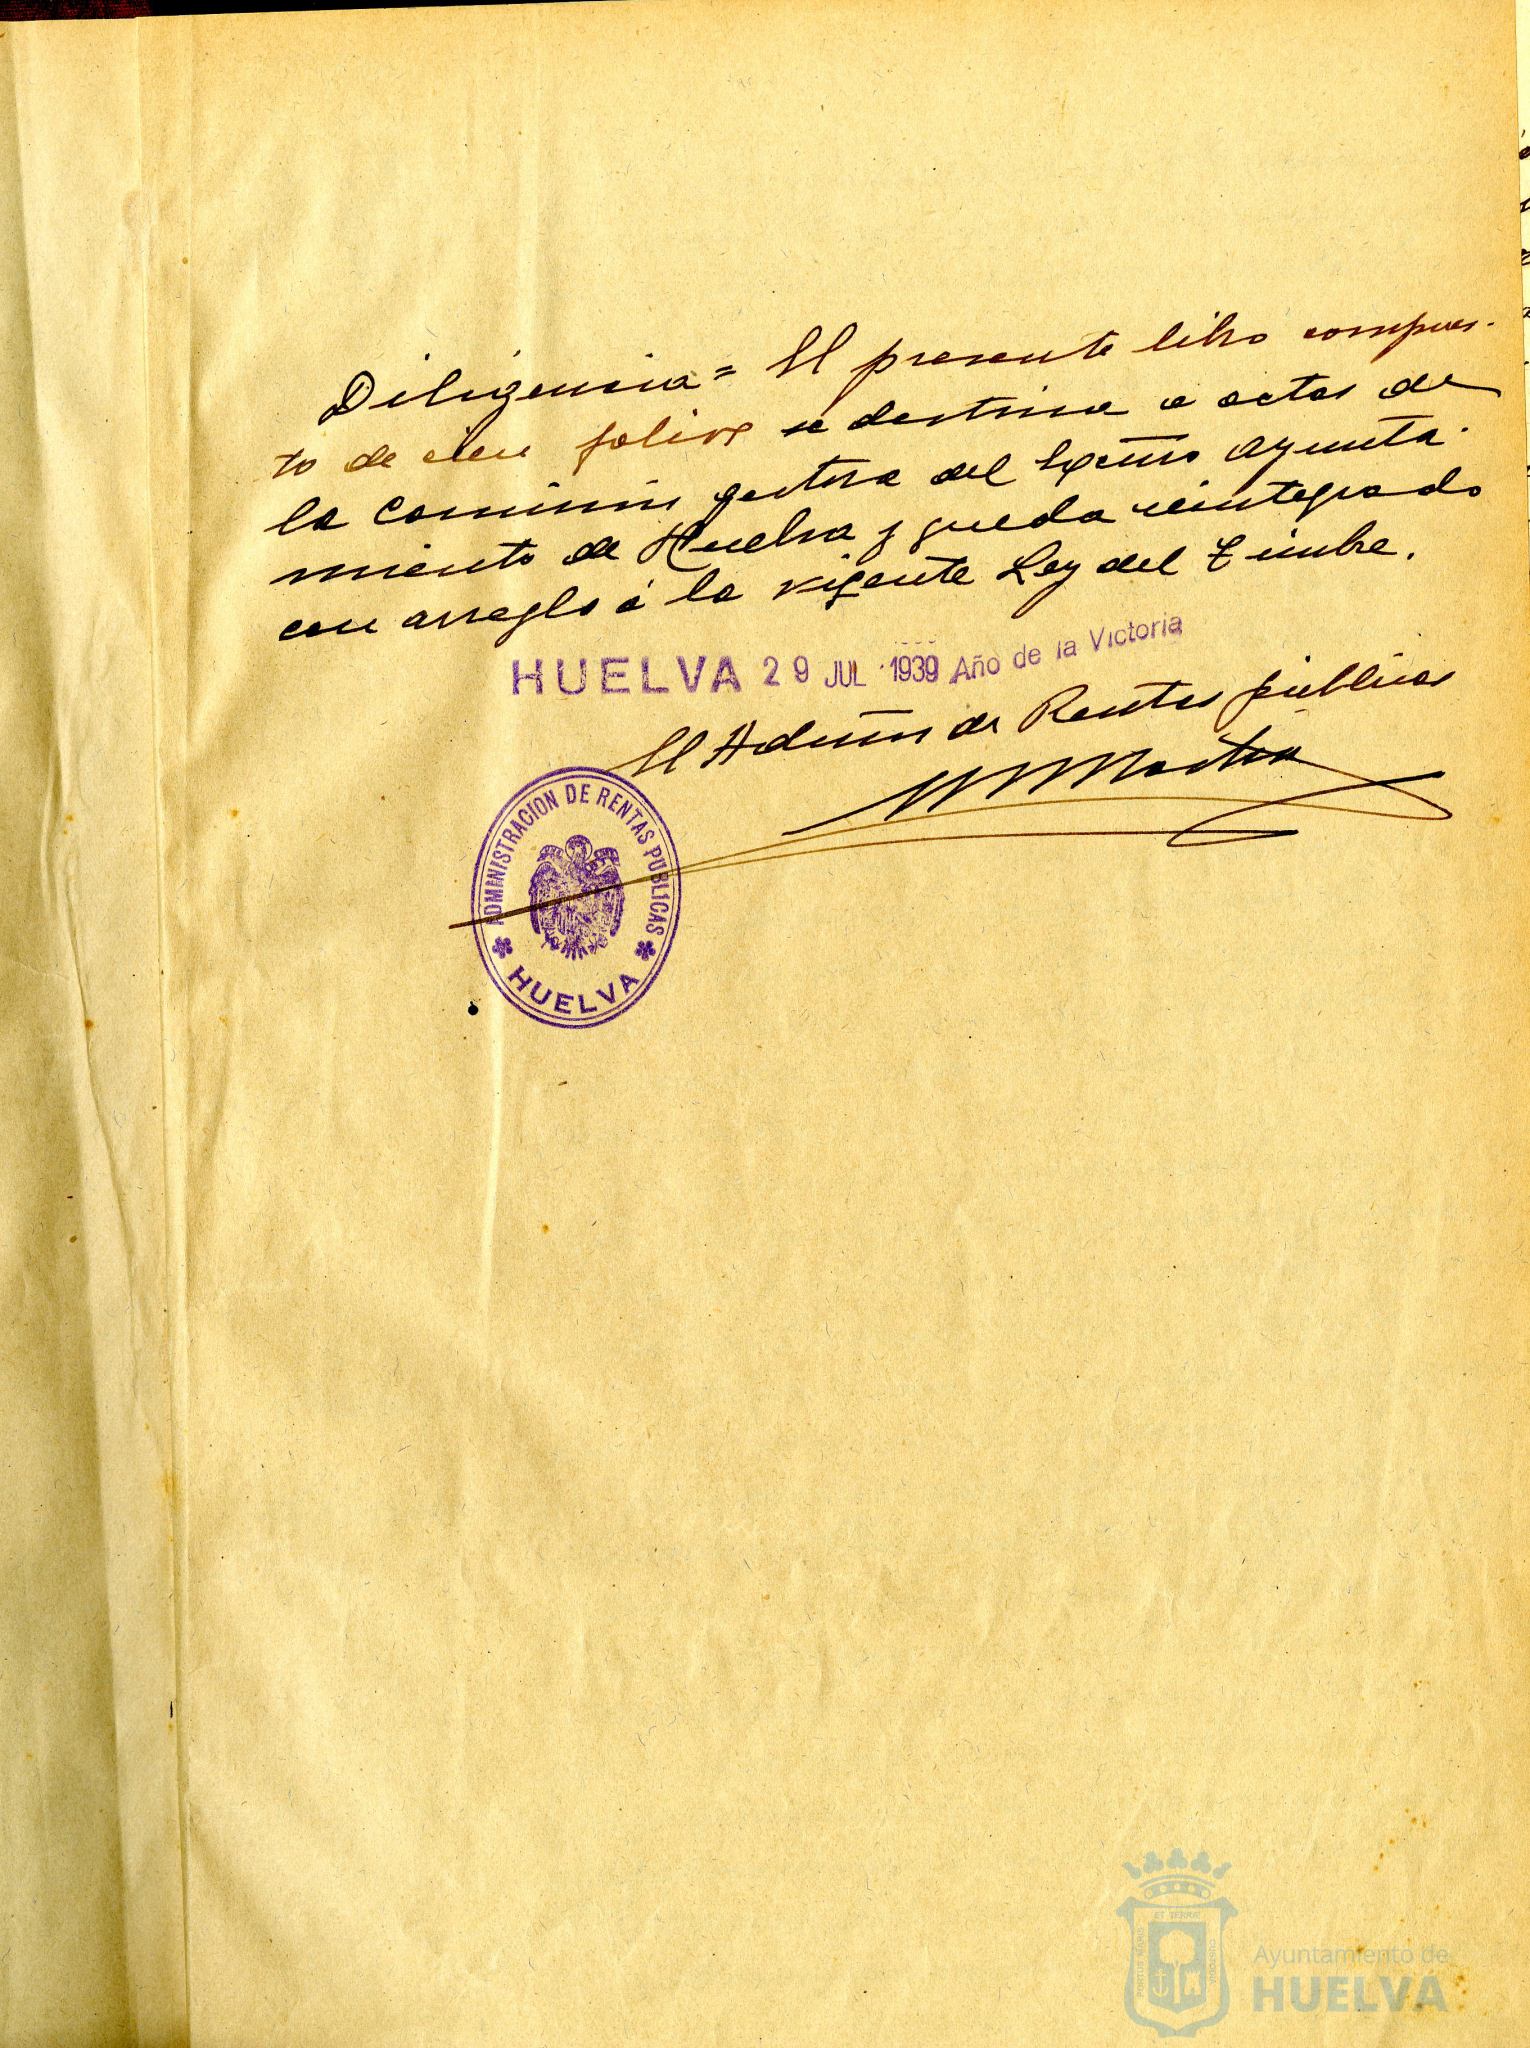 Diligencia = El presente libro compues-
to de cien folios se destina a actas de
la Comisión gestora del Excmo Ayunta-
miento de Huelva y queda reintegrado
con arreglo á la vigente Ley del Timbre.
HUELVA 29 JUL 1939 Año de la Victoria
El Admon de Rentas públicas
ADMINISTRACION DE RENTAS PUBLICAS
HUELVA
Ayuntamiento de
HUELVA